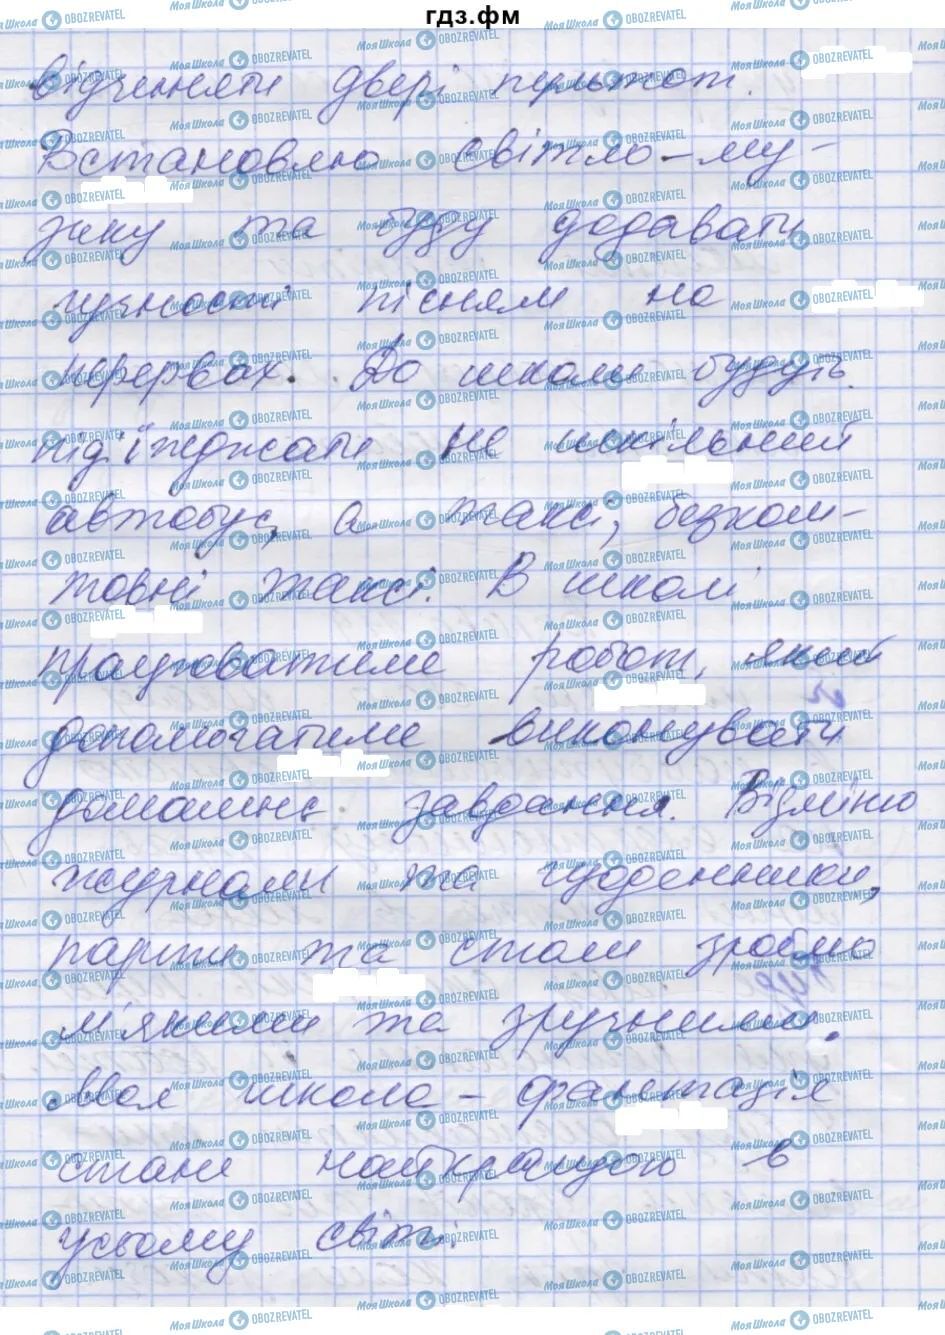 гдз.фм
відчиняти двері пультом.
Встановлю світло-му-
зику та буду додавати
гучності пісням на
перервах. До школи будуть
під'їжджати не шкільний
автобус, а таксі, безкош-
товні таксі. В школі
працюватиме робот, який
допомагатиме виконувати
домашнє завдання. Візьміню
журнали та щоденники,
парти та столи зроблю
м'якими та зручними.
Моя школа – фантазія
стане найкращою в
усьому світі.